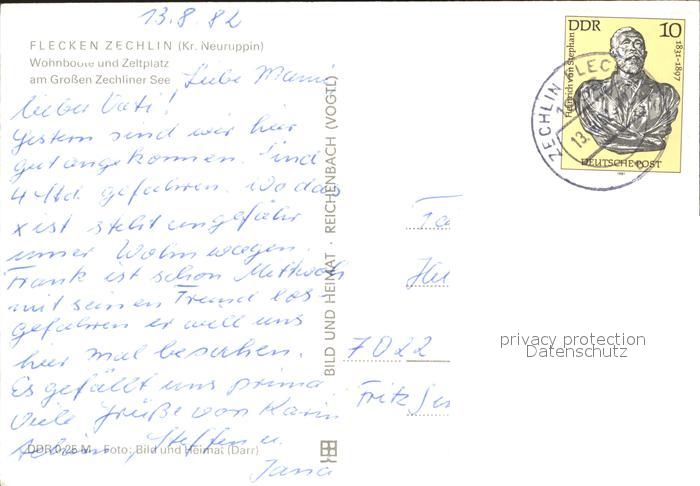 13.8.82
FLECKEN ZECHLIN (Kr. Neuruppin)
Wohnboote und Zeltplatz
am Großen Zechliner See
Liebe Mami
lieber Vati!
Gestern sind wir hier
gut angekommen. Sind
4 Std. gefahren. Wo das
x ist steht ungefähr
unser Wohnwagen.
Frank ist schon Mittwoch
mit seinen Freund los-
gefahren er will uns
hier mal besuchen.
Es gefällt uns prima
Viele Grüße von Karin
Steffen u.
Jana
DDR 0,25 M Foto: Bild und Heimat (Darr)
BILD UND HEIMAT · REICHENBACH (VOGTL)
DDR 10
Heinrich von Stephan
1831-1897
DEUTSCHE POST
1981
ZECHLIN FLEC
13.
7022
Fritz
privacy protection
Datenschutz